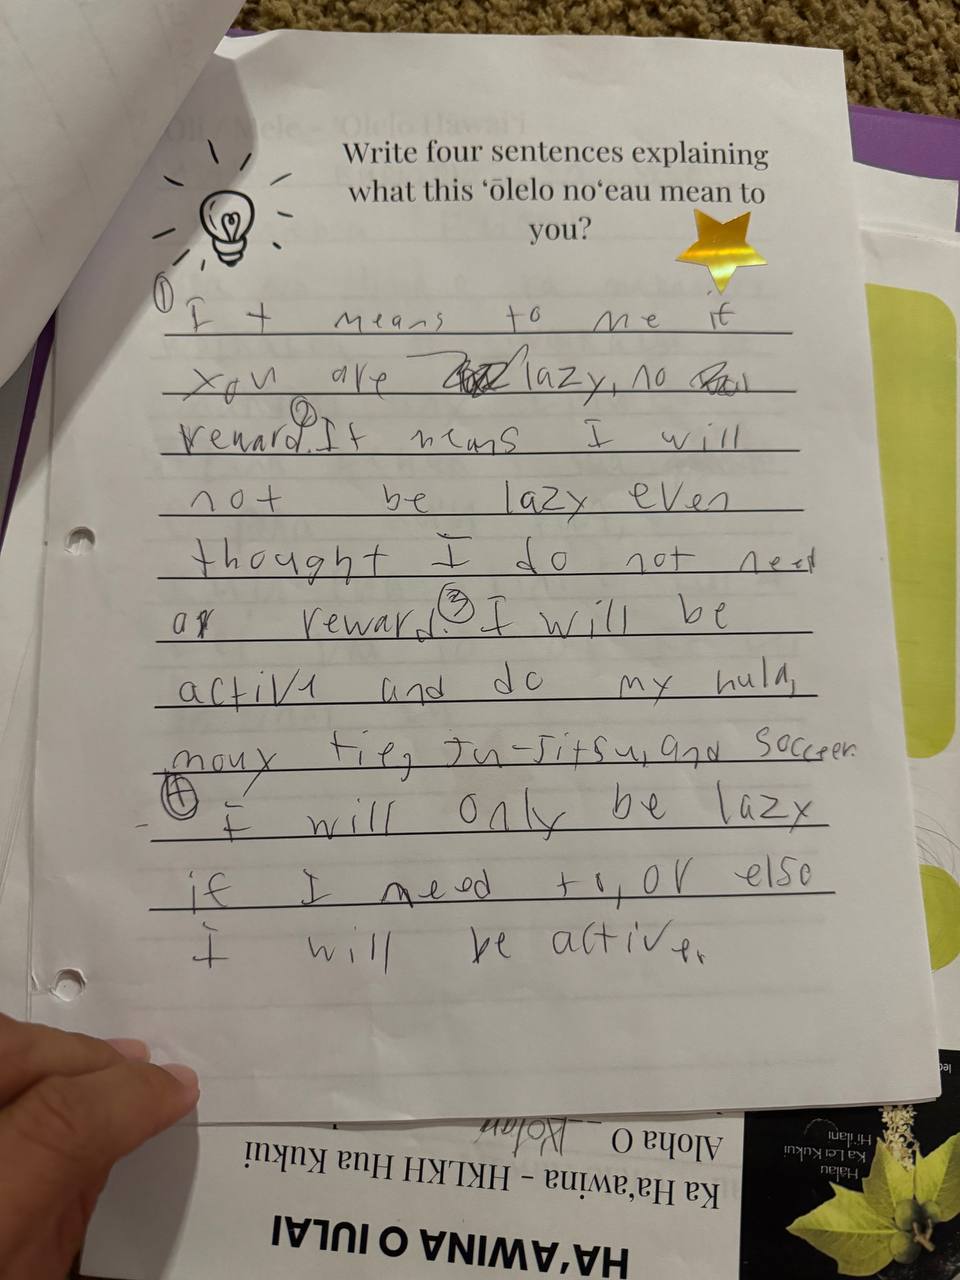 Write four sentences explaining
what this ‘ōlelo no‘eau mean to
you?
① It means to me if
you are lazy, no
reward. ② It means I will
not be lazy even
thought I do not need
a reward. ③ I will be
active and do my hula,
mouy tie, Ju-Jitsu, and Socceer.
④ I will only be lazy
if I need to, or else
I will be active.
Aloha O
Ka Ha‘awina - HKLKH Hua Kukui
HA‘AWINA O IULAI
Halau
Ka Lei Kukui
Hi‘ilani